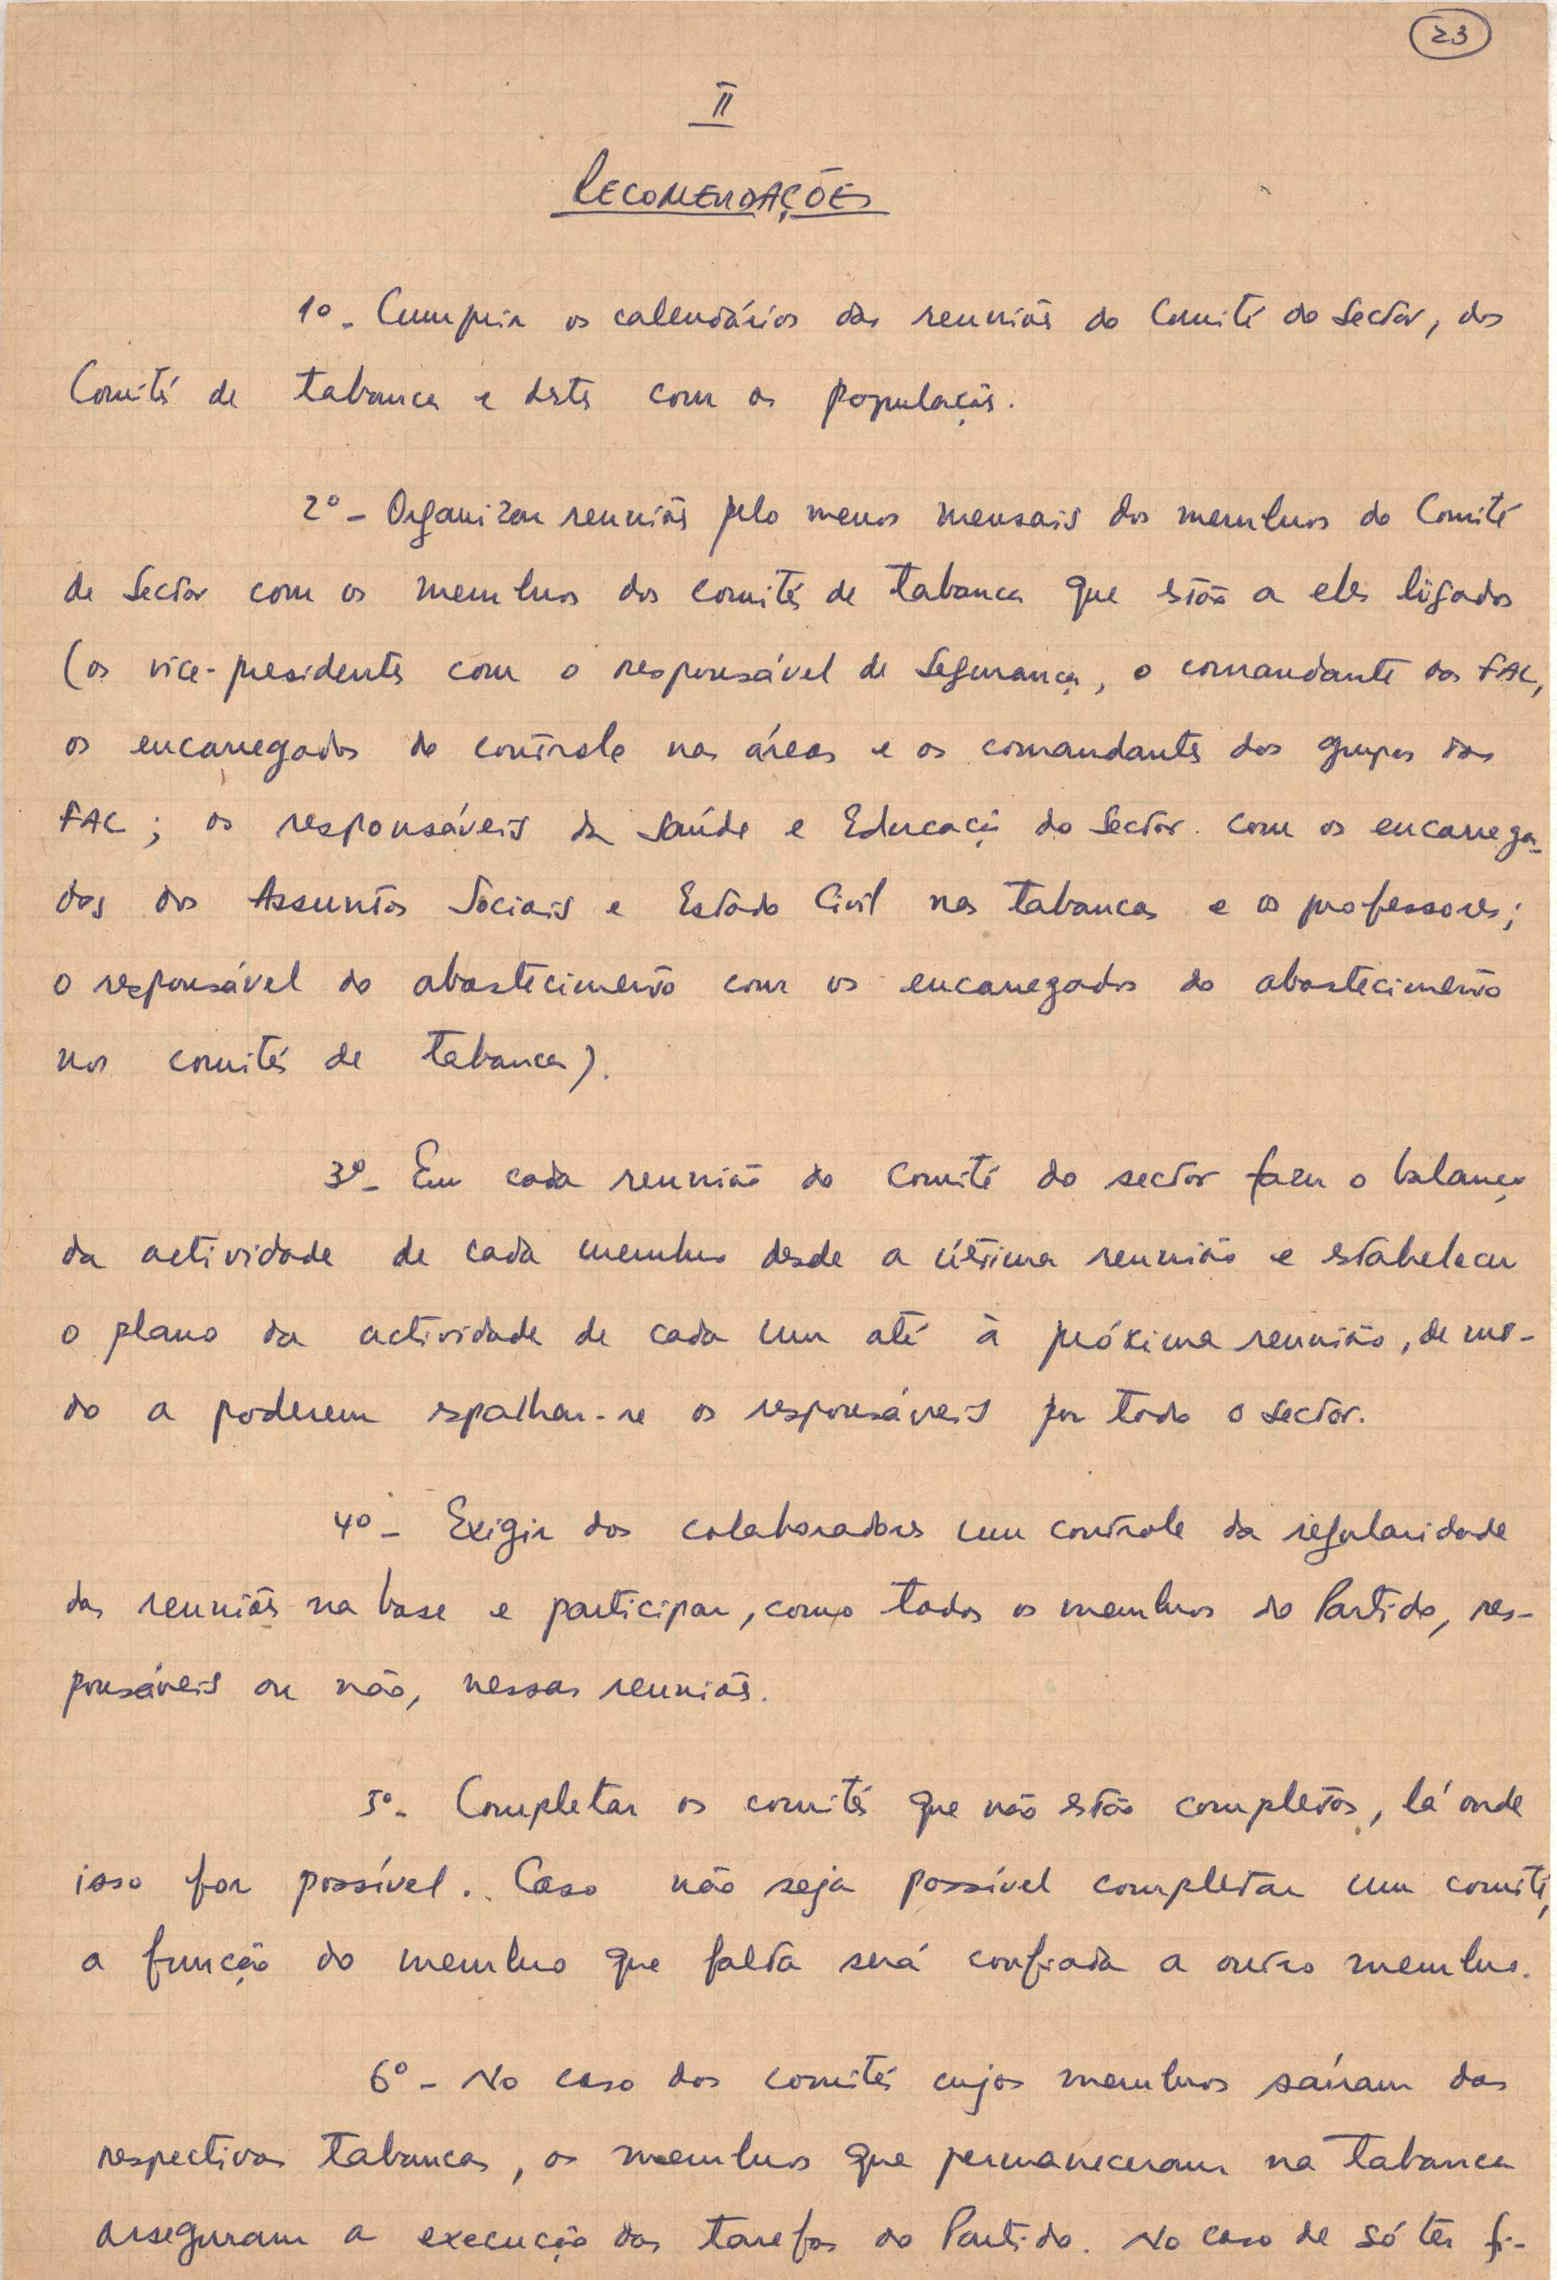 23
II
RECOMENDAÇÕES
1º - Cumprir os calendários das reuniões do Comité do Sector, dos
Comités de tabanca e destes com as populações.
2º - Organizar reuniões pelo menos mensais dos membros do Comité
de Sector com os membros dos comités de tabanca que estão a eles ligados
(os vice-presidentes com o responsável de Segurança, o comandante das FAL,
os encarregados do controle nas áreas e os comandantes dos grupos das
FAL; os responsáveis da Saúde e Educação do Sector com os encarrega-
dos dos Assuntos Sociais e Estado Civil nas tabancas e os professores;
o responsável do abastecimento com os encarregados do abastecimento
nos comités de tabanca).
3º - Em cada reunião do Comité do sector fazer o balanço
da actividade de cada membro desde a última reunião e estabelecer
o plano da actividade de cada um até à próxima reunião, de mo-
do a poderem espalhar-se os responsáveis por todo o sector.
4º - Exigir dos colaboradores um controle da regularidade
das reuniões na base e participar, como todos os membros do Partido, res-
ponsáveis ou não, nessas reuniões.
5º - Completar os comités que não estão completos, lá onde
isso for possível. Caso não seja possível completar um comité,
a função do membro que falta será confiada a outro membro.
6º - No caso dos comités cujos membros saíram das
respectivas tabancas, os membros que permaneceram na tabanca
asseguram a execução das tarefas do Partido. No caso de só ter fi-